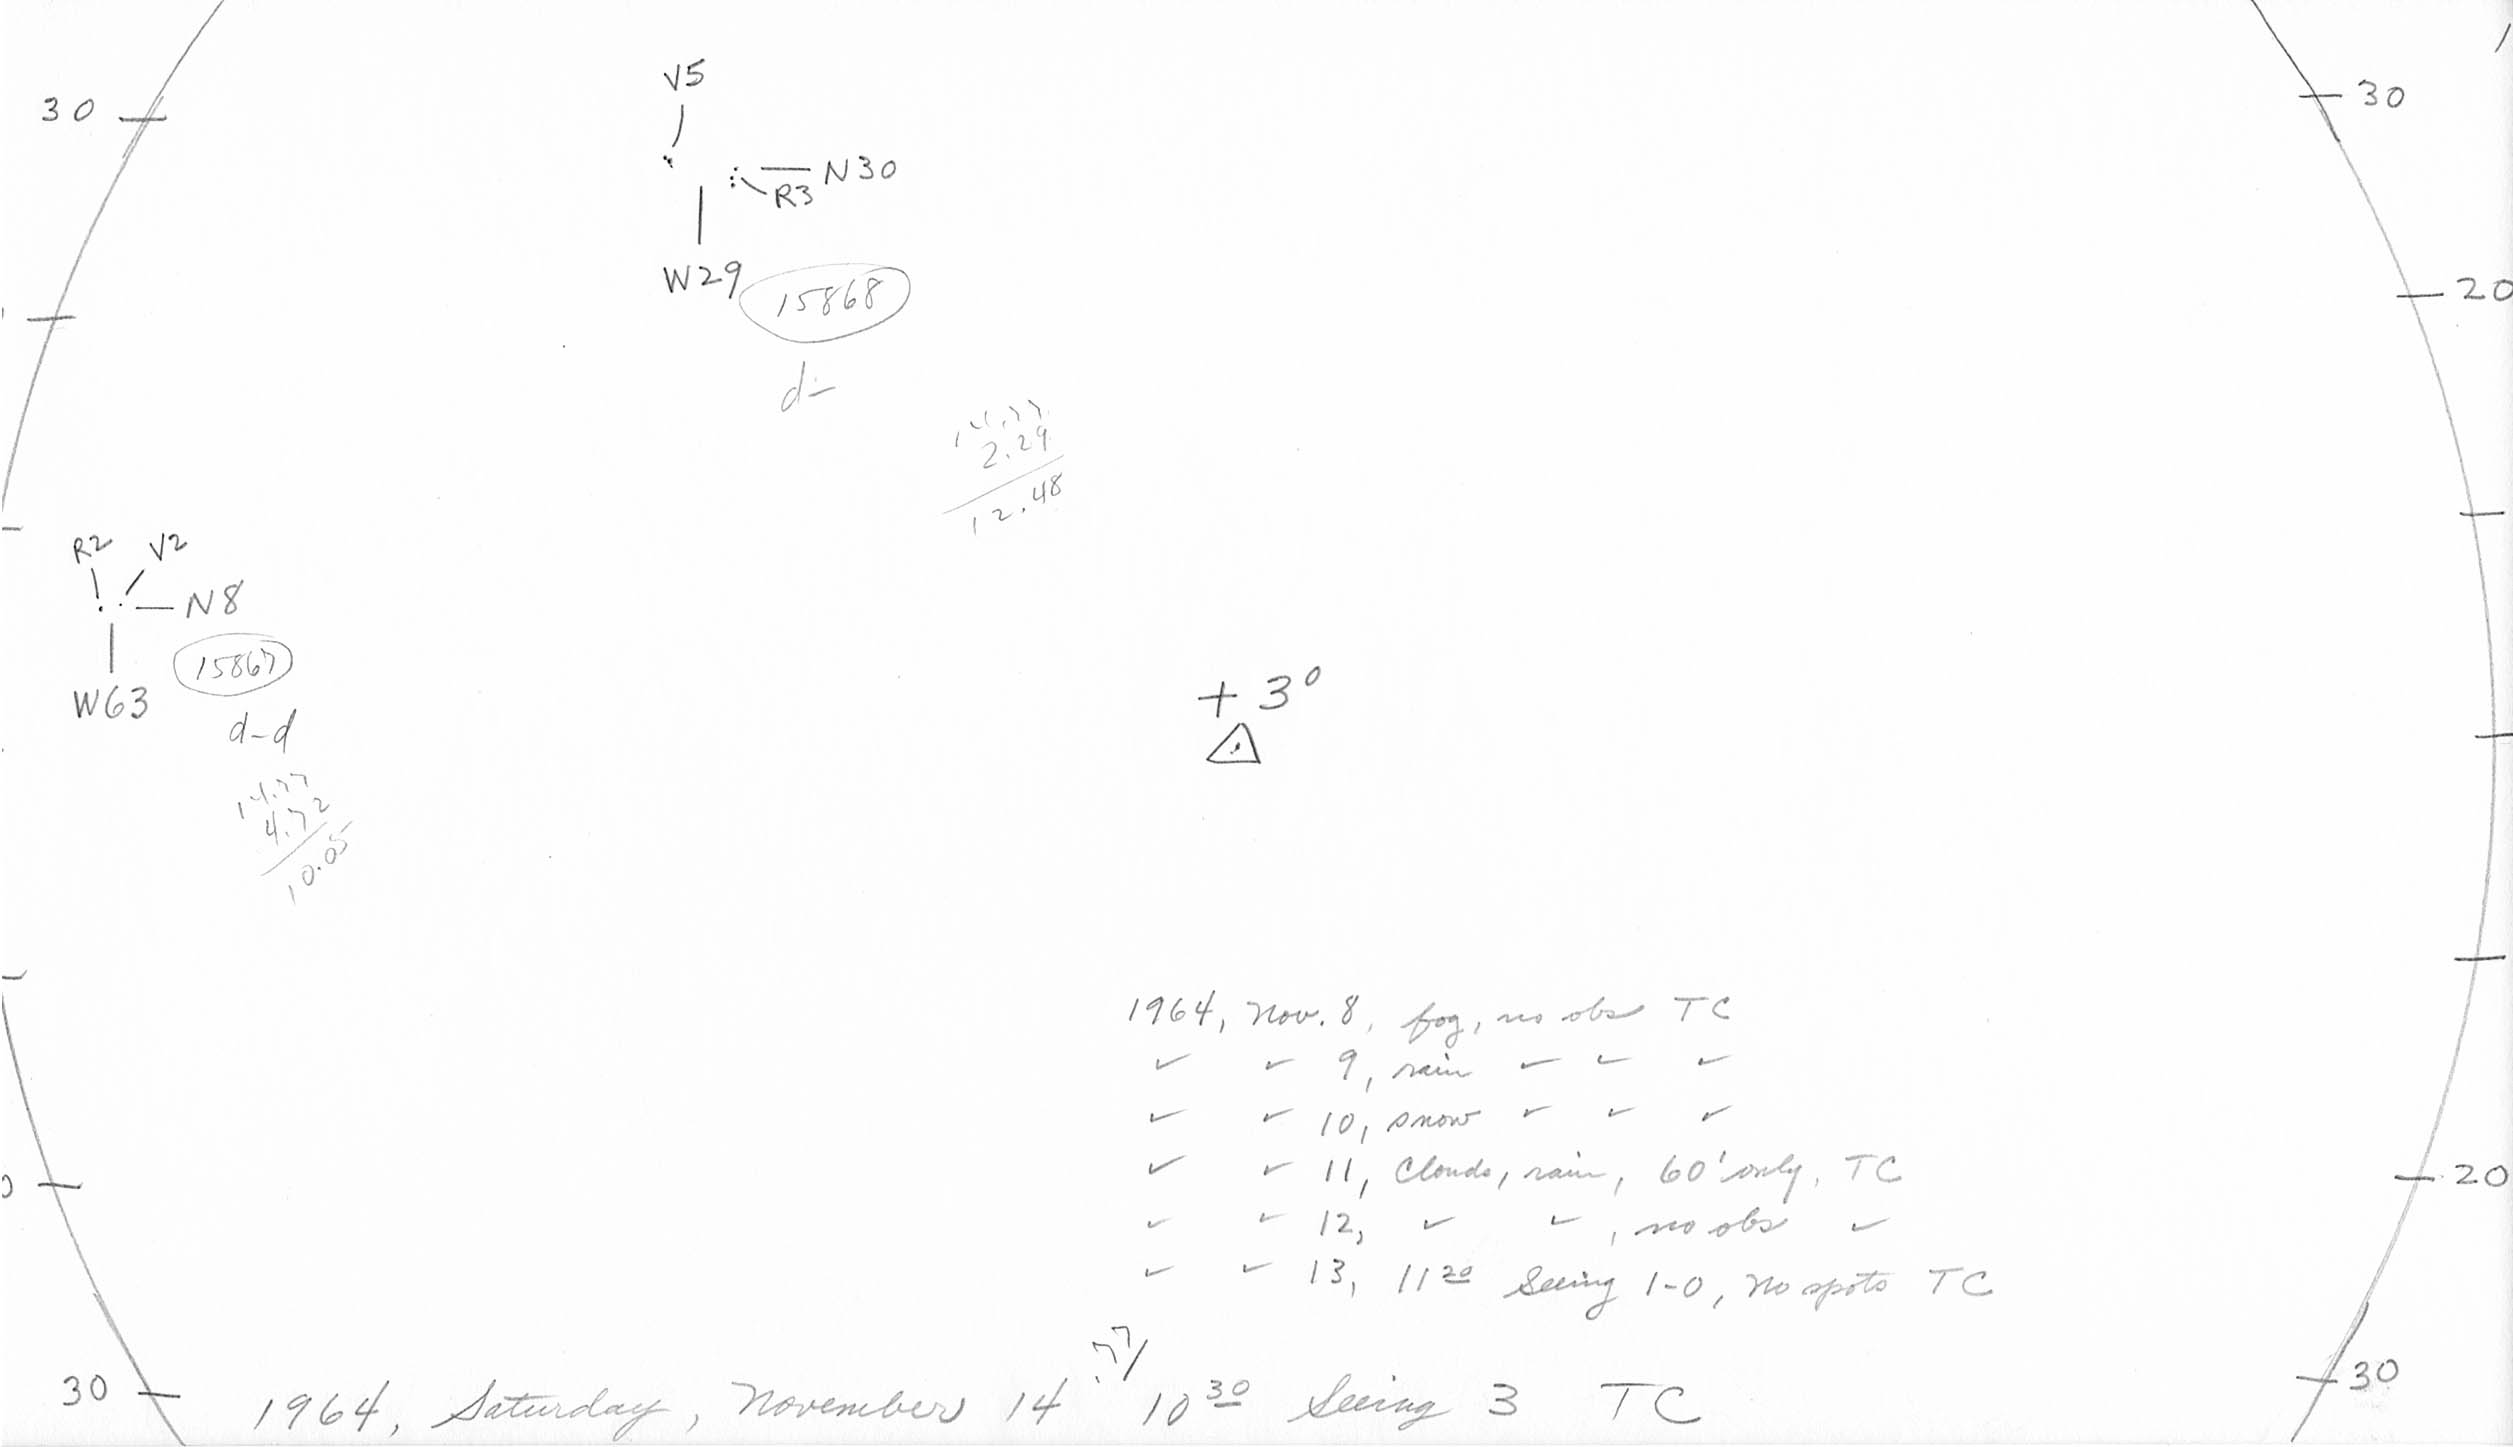 V5
30
30
N30
R3
W29
15868
20
d-
14.77
2.29
12.48
R2 V2
N8
15867
W63
d-d
+ 3°
14.77
4.72
10.05
1964, Nov. 8, fog, no obs TC
✓ ✓ 9, rain ✓ ✓ ✓
✓ ✓ 10, snow ✓ ✓ ✓
✓ ✓ 11, Clouds, rain, 60' only, TC
✓ ✓ 12, ✓ ✓, no obs ✓
✓ ✓ 13, 11 20 Seeing 1-0, No spots TC
20
30
30
.77
1964, Saturday, November 14 10 30 Seeing 3 TC